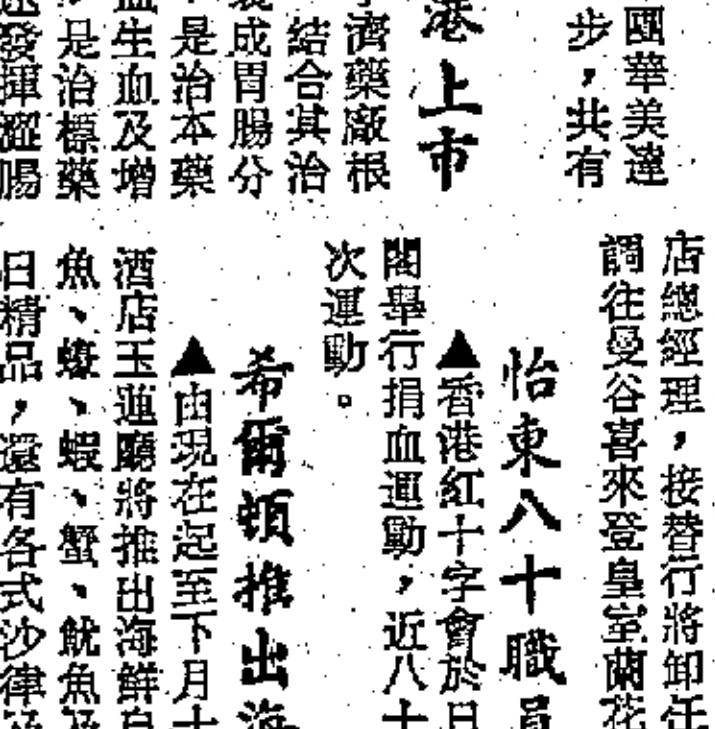 國華美達
步，共有
港上市
濟藥廠根
結合其治
成胃腸分
是治本藥
血生血及增
，是治標藥
發揮澀腸
店總經理，接替行將卸任
調往曼谷喜來登皇室蘭花
怡東八十職員
▲香港紅十字會於日
閣舉行捐血運動，近八十
次運動。
希爾頓推出海
▲由現在起至下月十
酒店玉蓮廳將推出海鮮自
魚、蠔、蝦、蟹、魷魚及
日精品，還有各式沙律及